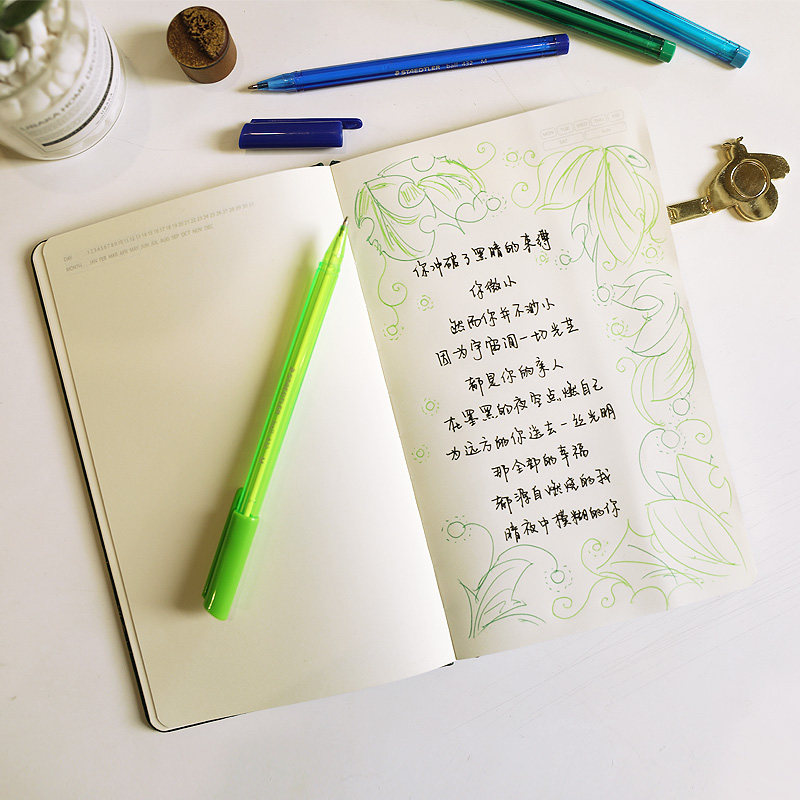 STAEDTLER ball 432 M
MON TUE WED THU FRI
SAT
DAY 1 2 3 4 5 6 7 8 9 10 11 12 13 14 15 16 17 18 19 20 21 22 23 24 25 26 27 28 29 30 31
MONTH JAN FEB MAR APR MAY JUN JUL AUG SEP OCT NOV DEC
你冲破了黑暗的束缚
你微小
然而你并不渺小
因为宇宙间一切光芒
都是你的亲人
在墨黑的夜空点燃自己
为远方的你送去一丝光明
那全部的幸福
都源自燃烧的我
暗夜中模糊的你